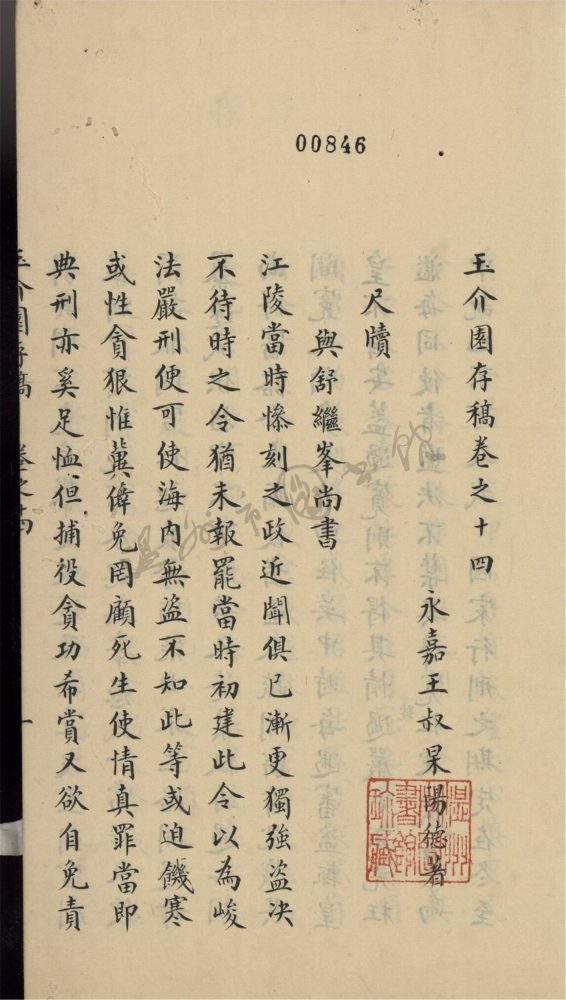 00846
玉介園存稿卷之十四
永嘉王叔杲陽德著
尺牘
與舒繼峯尚書
江陵當時慘刻之政近聞俱已漸更獨強盜决
不待時之令猶未報罷當時初建此令以為峻
法嚴刑便可使海内無盜不知此等或迫饑寒
或性貪狠惟冀倖免罔顧死生使情真罪當即
典刑亦奚足恤但捕役貪功希賞又欲自免責
玉介園存稿 卷之十四 一